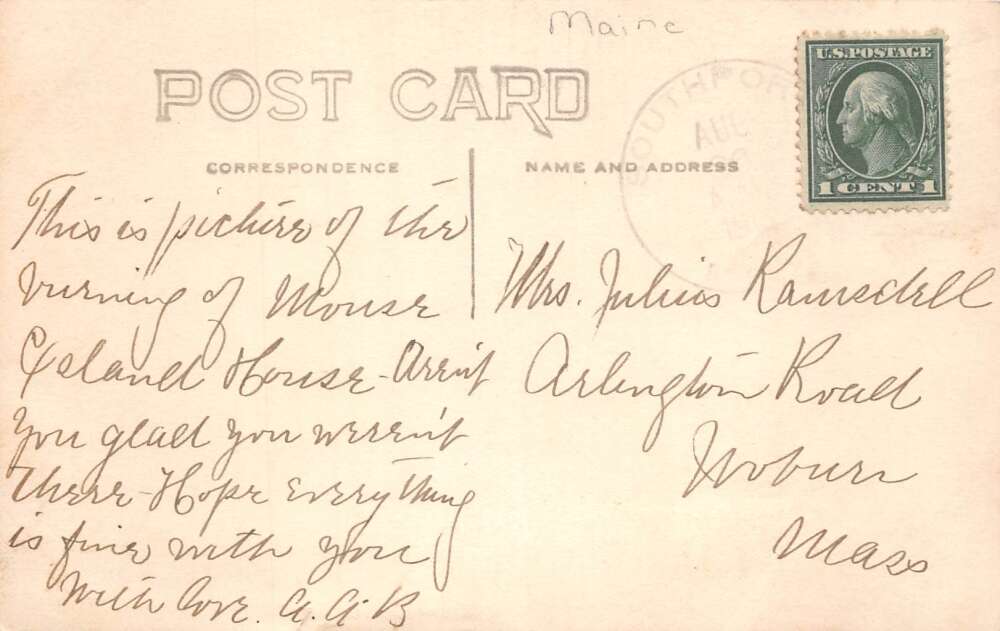 Maine
POST CARD
SOUTHPOR
AUG
U.S. POSTAGE
1 CENT 1
CORRESPONDENCE
NAME AND ADDRESS
This is picture of the
burning of Mouse
Island House - Aren't
you glad you weren't
there - Hope everything
is fine with you
With love. A. A. B
Mrs. Julius Ramsdell
Arlington Road
Woburn
Mass